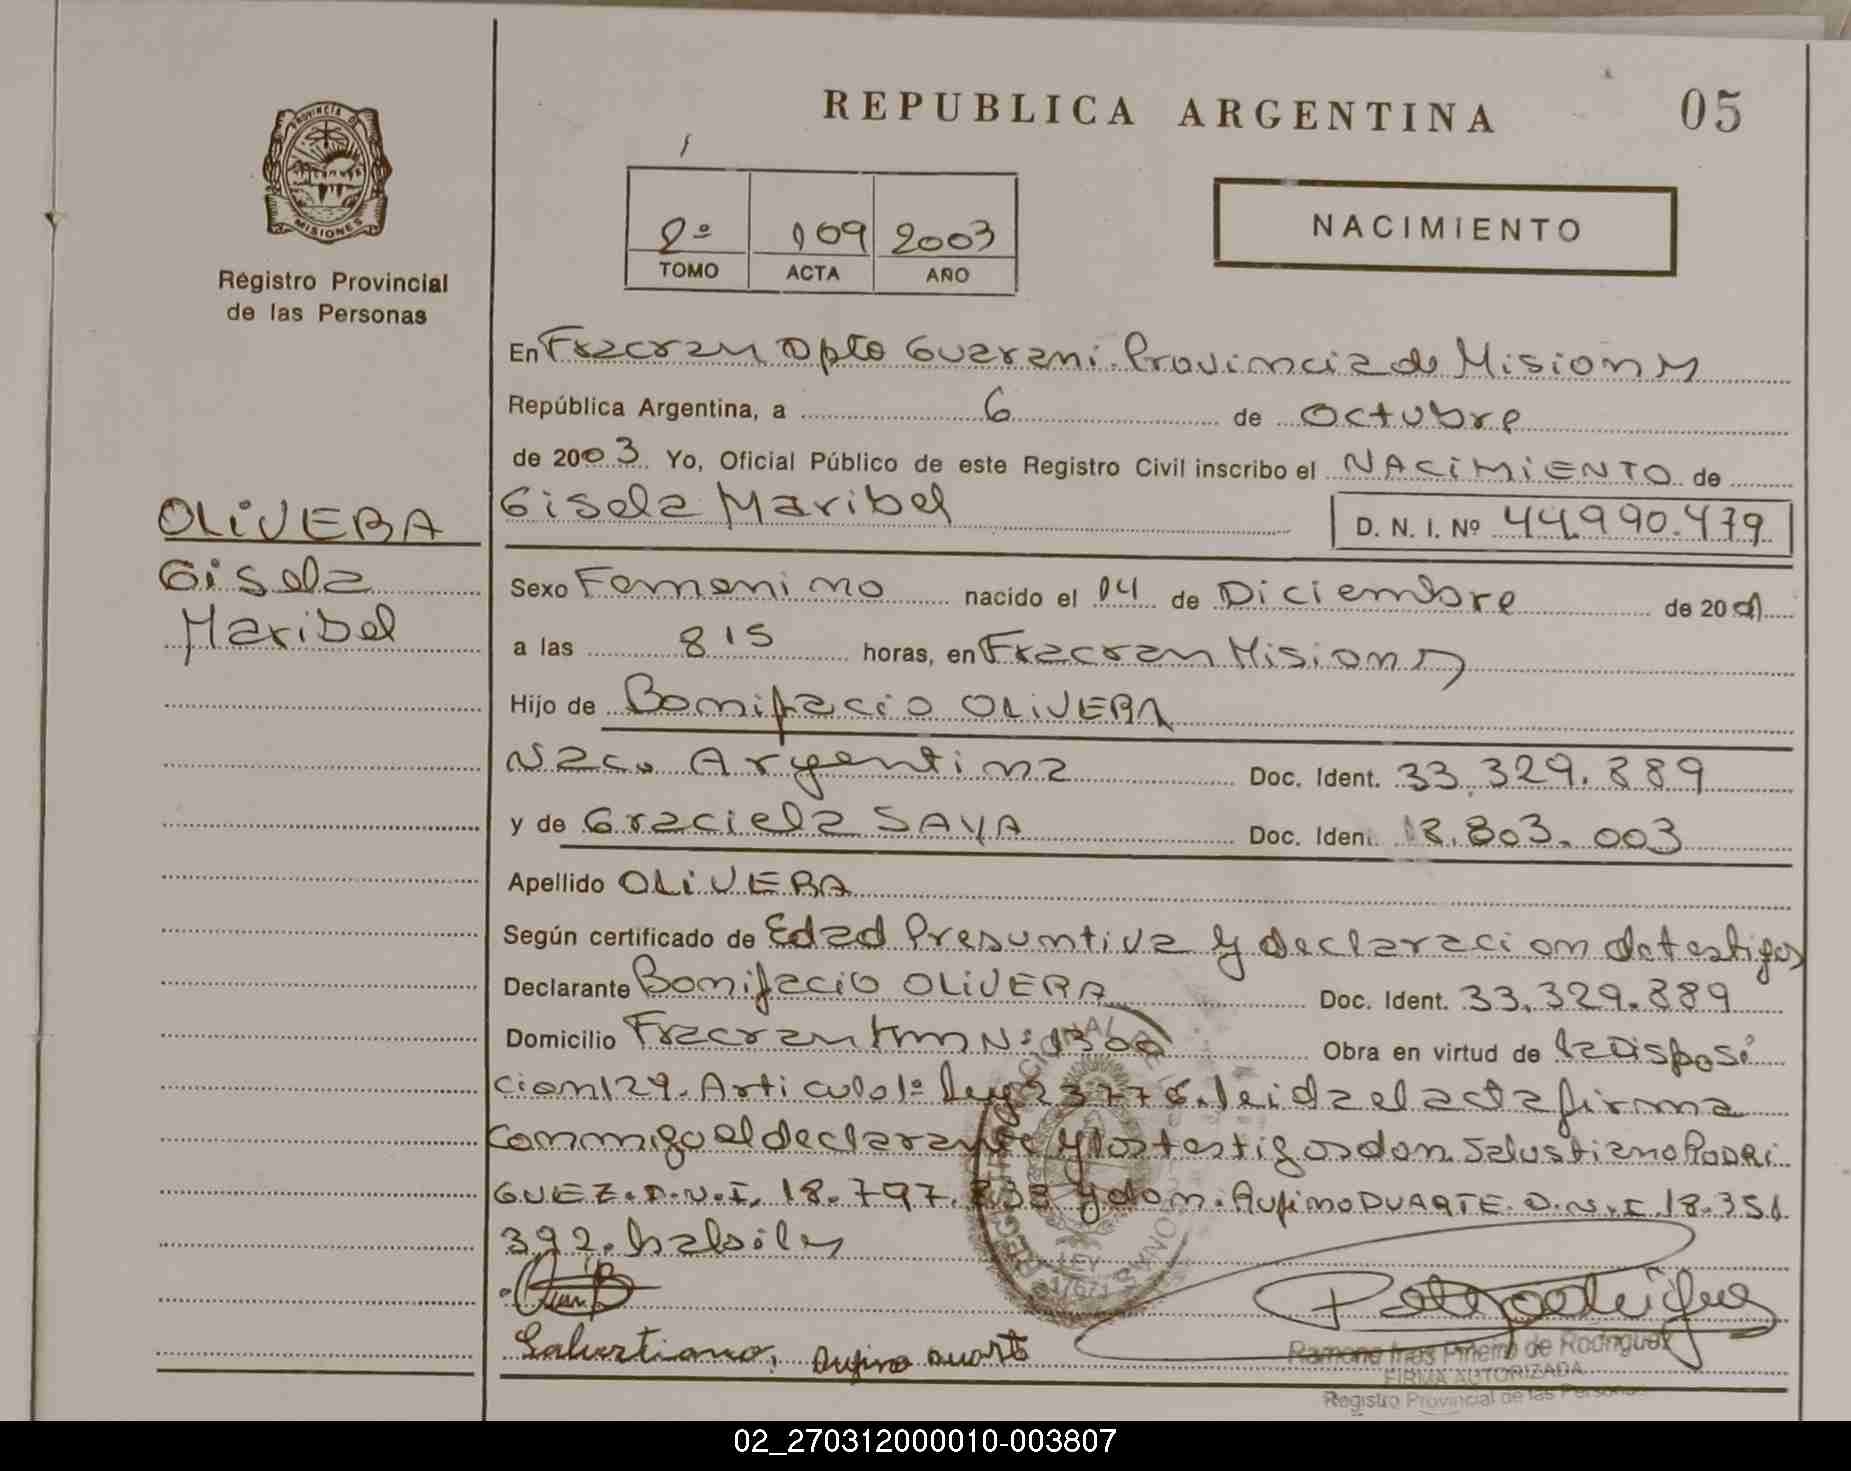 REPUBLICA ARGENTINA
05
PROVINCIA DE MISIONES
Registro Provincial
de las Personas
2º 109 2003
TOMO ACTA AÑO
NACIMIENTO
En Fracran Dpto Guarani. Provincia de Misiones
República Argentina, a 6 de Octubre
de 2003 Yo, Oficial Público de este Registro Civil inscribo el NACIMIENTO de
Gisela Maribel D. N. I. Nº 44.990.479
OLIVERA
Gisela
Maribel
Sexo Femenino nacido el 04 de Diciembre de 20
a las 8 15 horas, en Fracran Misiones
Hijo de Bonifacio OLIVERA
Nac. Argentina Doc. Ident. 33.329.889
y de Graciela SAYA Doc. Iden. 18.803.003
Apellido OLIVERA
Según certificado de Edad Presuntiva y declaracion de testigos
Declarante Bonifacio OLIVERA Doc. Ident. 33.329.889
Domicilio Fracran Km Nº 1300 Obra en virtud de la Disposi
cion 129. Articulo 1º Ley 23776. leida el acta firma
conmigo el declarante y los testigos don Salustiano RODRI
GUEZ. D.N.I. 18.797. y don. Rufino DUARTE. D.N.I. 18.351.
392. habiles
Salustiano. Rufino Duarte
Ramona Ines Pineiro de Rodriguez
FIRMA AUTORIZADA
Registro Provincial de las Personas
LEY
17671
02_270312000010-003807